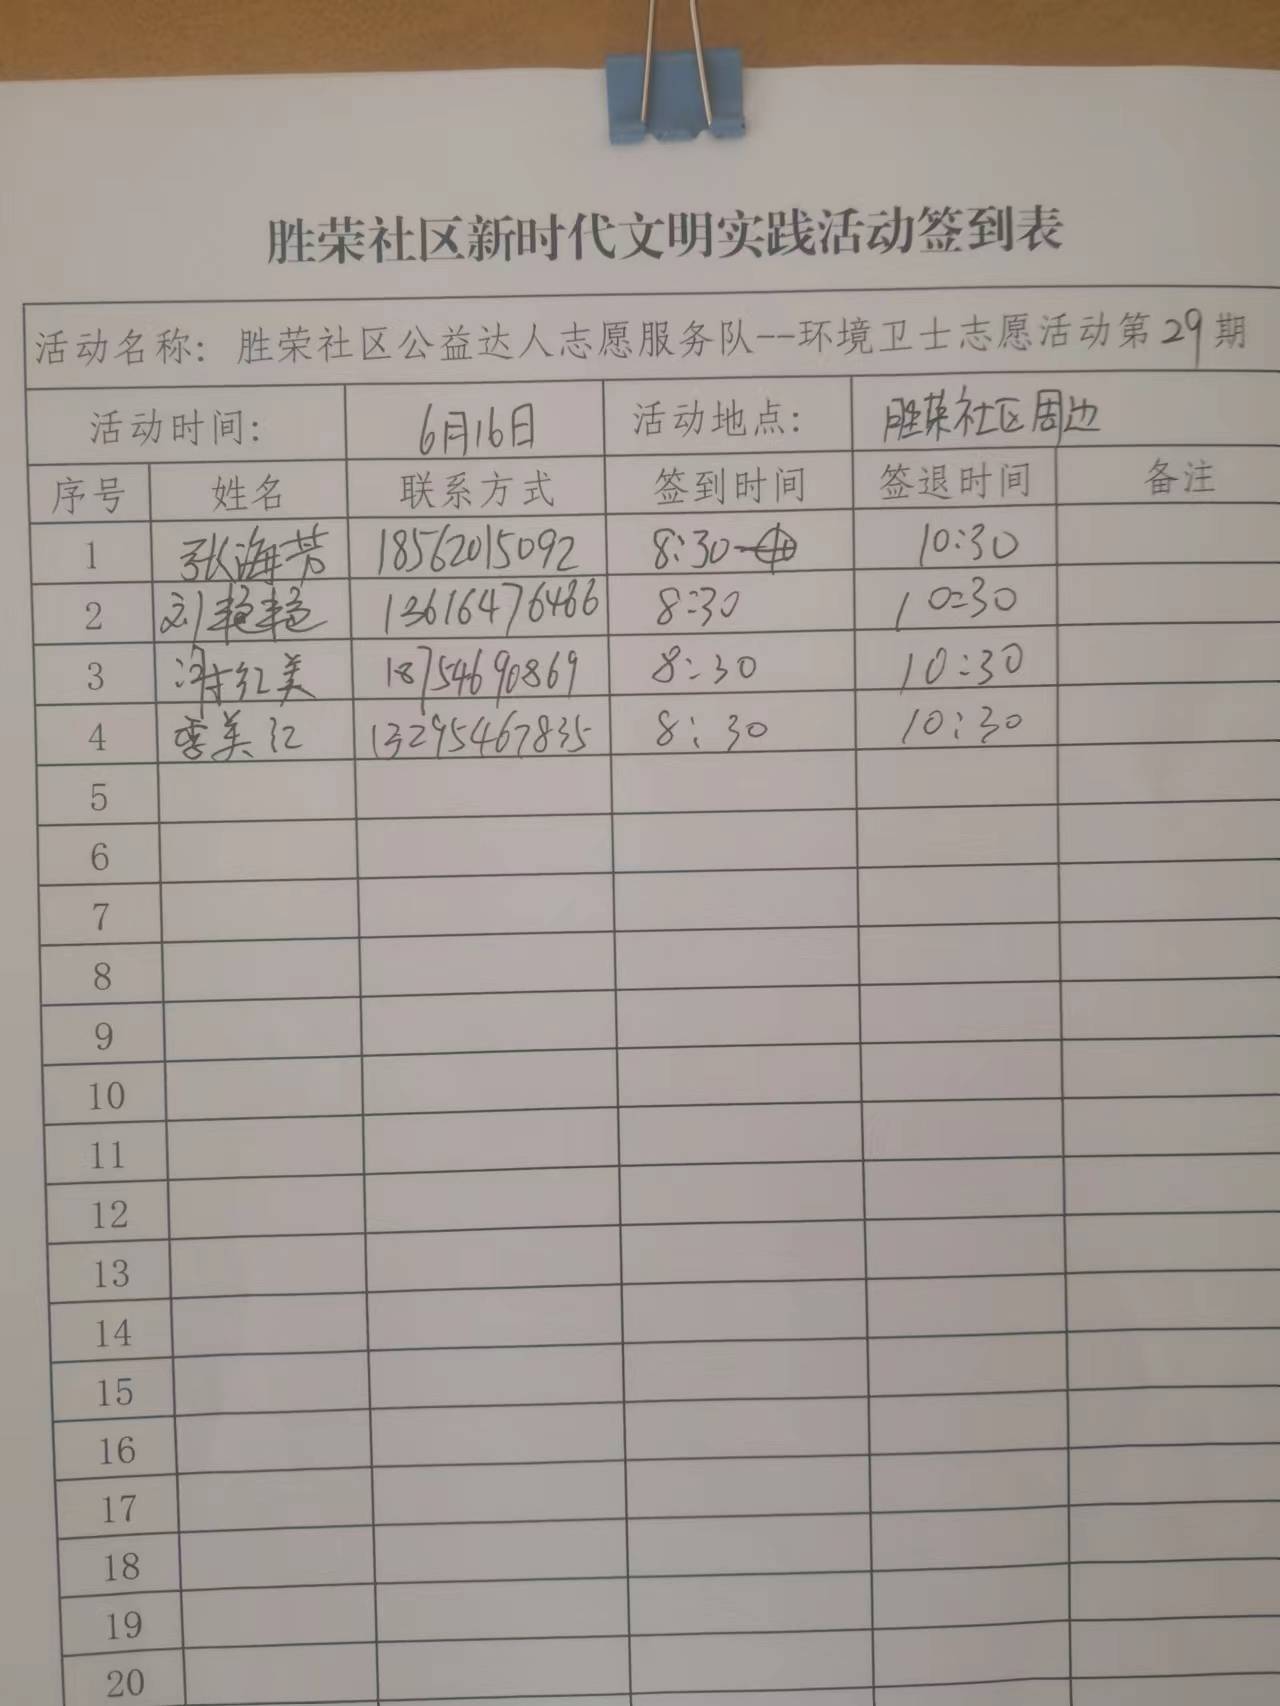 胜荣社区新时代文明实践活动签到表
活动名称：胜荣社区公益达人志愿服务队--环境卫士志愿活动第29期
活动时间： 6月16日 活动地点： 胜荣社区周边
序号 姓名 联系方式 签到时间 签退时间 备注
1 张海芳 18562015092 8:30 10:30
2 刘艳艳 13616476466 8:30 10:30
3 红美 18754690869 8:30 10:30
4 李美江 13295467835 8:30 10:30
5
6
7
8
9
10
11
12
13
14
15
16
17
18
19
20